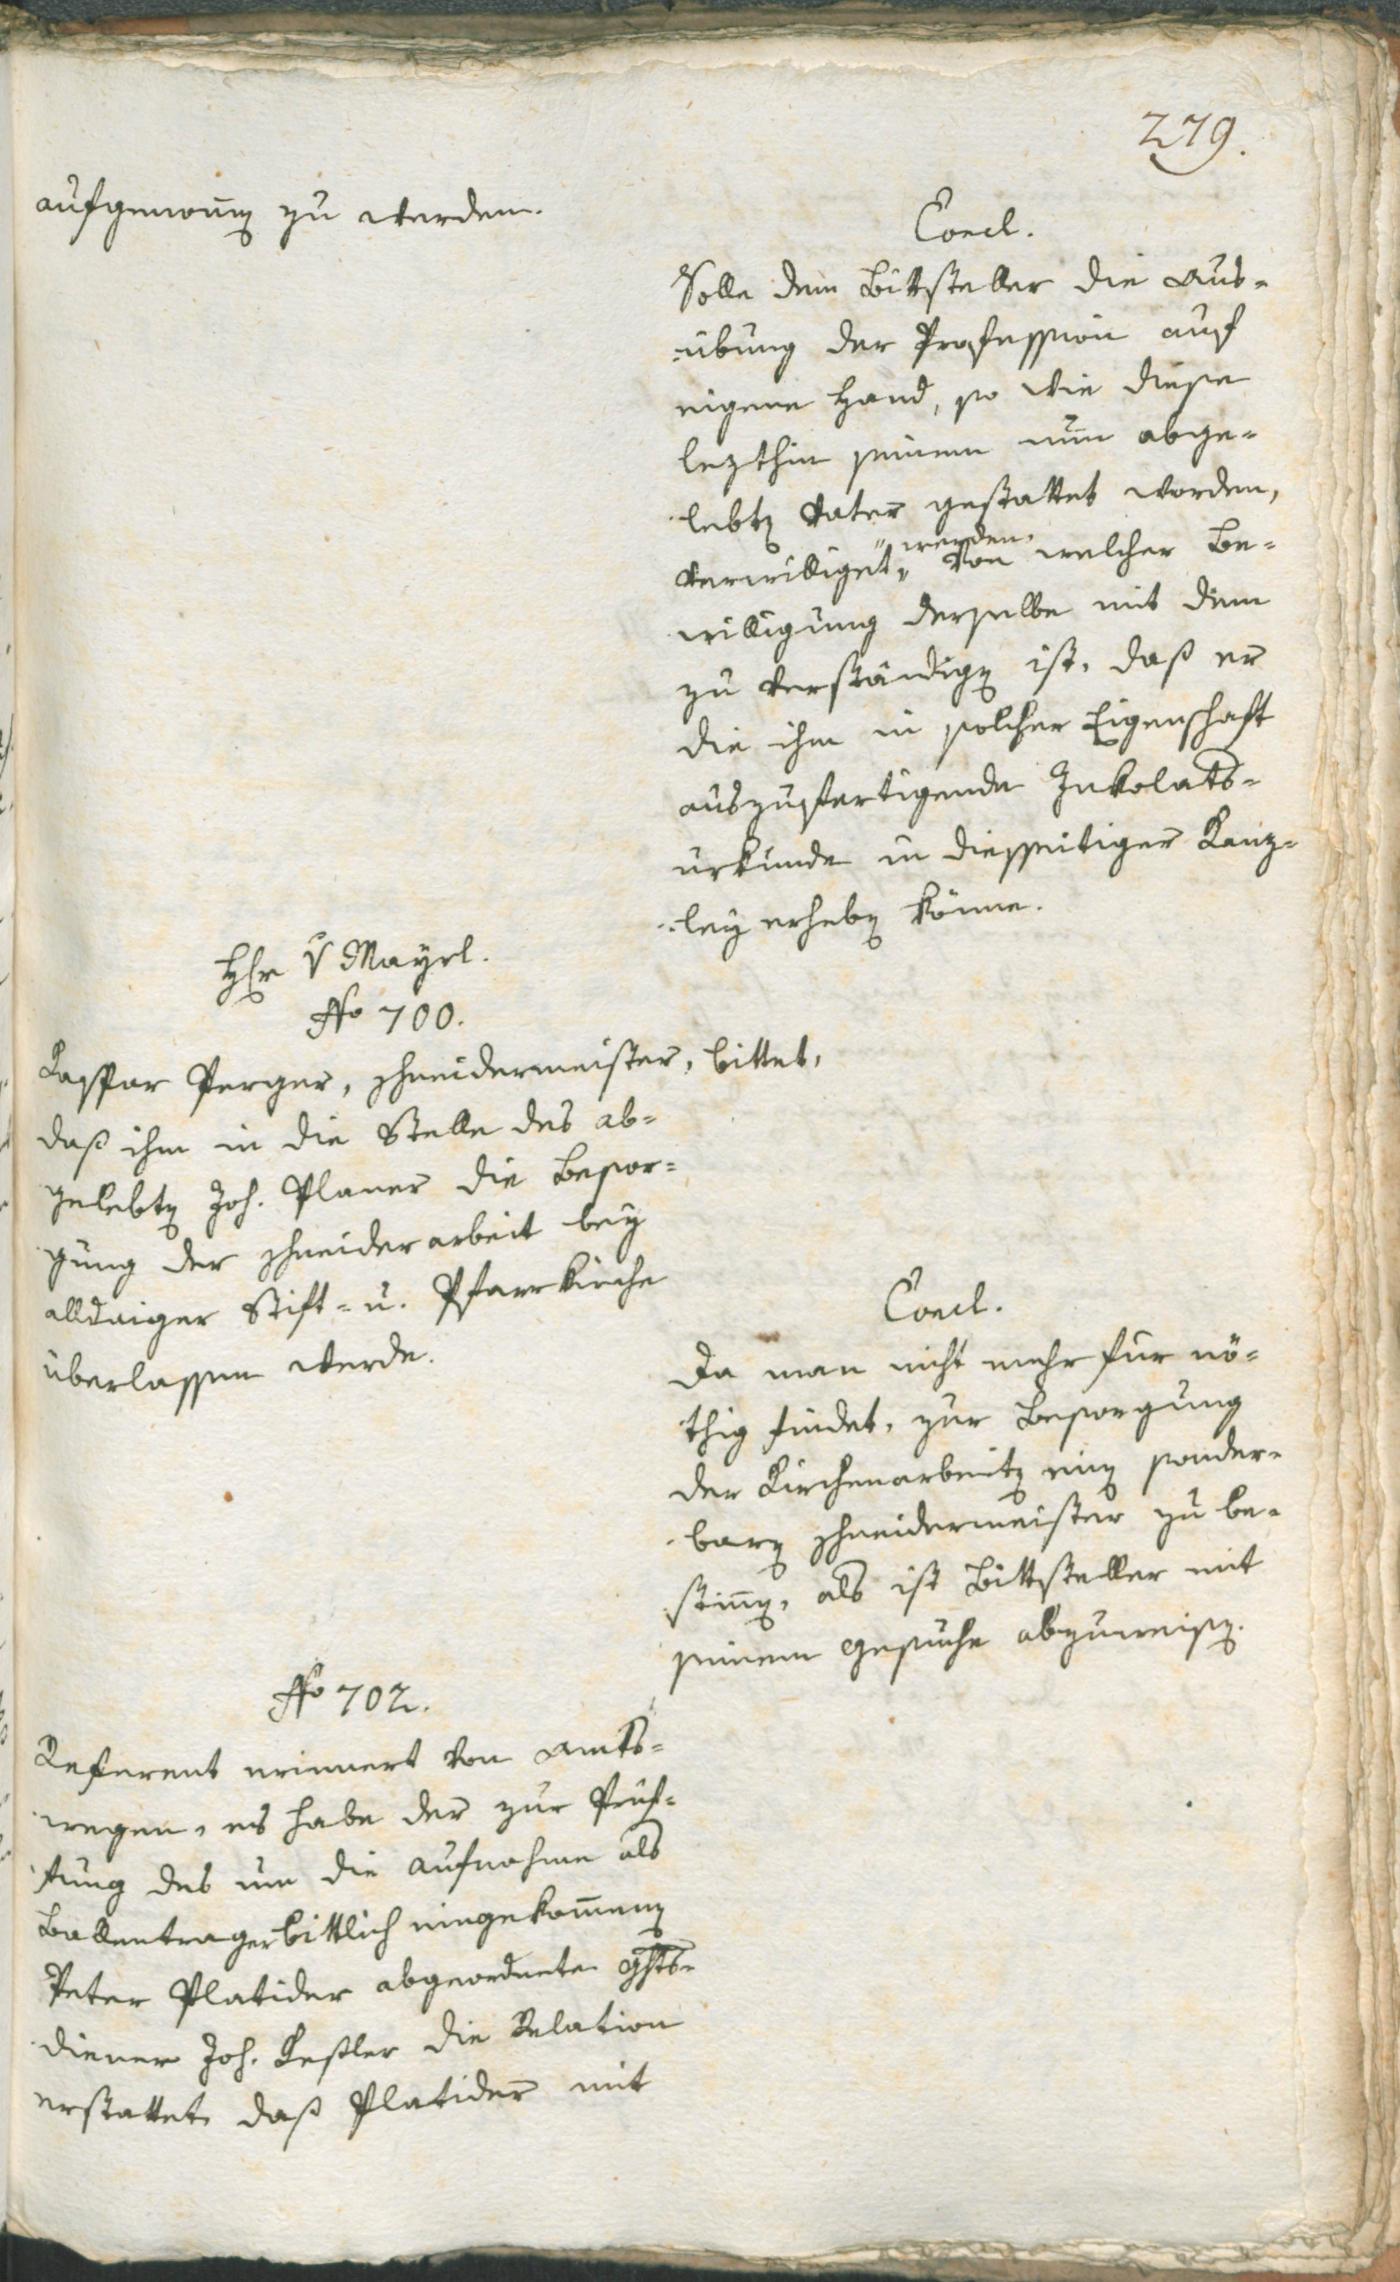 279.
aufgenom̅en zu werden.
Concl.
Solle dem Bittsteller die Aus-
übung der Profession auf
eigene Hand, so wie diese
lezthin seinem nun abge-
lebten Vater gestattet worden,
verwilliget „werden. Von welcher Be-
willigung derselbe mit dem
zu verständigen ist, daß er
die ihm in solcher Eigenschaft
auszufertigende Inkolats-
urkunde in diesseitiger Kanz-
ley erheben könne.
Hr v Mayrl.
No 700.
Kaspar Perger, Schneidermeister, bittet,
daß ihm in die Stelle des ab-
gelebten Joh. Planer die Besor-
gung der Schneiderarbeit bey
alldaiger Stift- u. Pfarrkirche
überlassen werde.
Concl.
Da man nicht mehr für nö-
thig findet, zur Besorgung
der Kirchenarbeiten einen sonder-
baren Schneidermeister zu be-
stim̅en, als ist Bittsteller mit
seinem Gesuche abzuweisen.
No 702.
Referent erinnert von Amts-
wegen, es habe der zur Prüf-
fung des um die Aufnahme als
Ballentrager bittlich eingekom̅enen
Peter Platider abgeordnete Ghts-
diener Joh. Keßler die Relation
erstattet, daß Platider mit